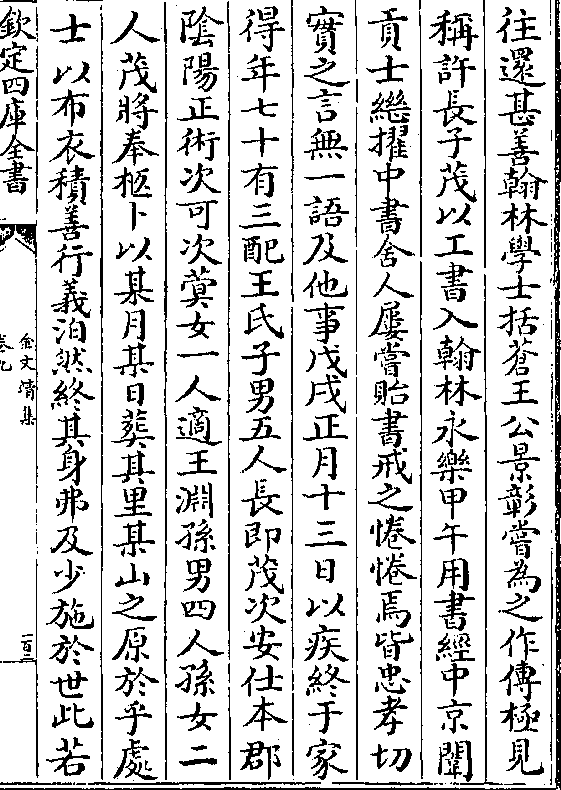 往還甚善翰林學士括蒼王公景彰嘗為之作傳極見
稱許長子茂以工書入翰林永樂甲午用書經中京闈
貢士繼擢中書舍人屢嘗貽書戒之惓惓焉皆忠孝切
實之言無一語及他事戊戌正月十三日以疾終于家
得年七十有三配王氏子男五人長即茂次安仕本郡
陰陽正術次可次蓂女一人適王淵孫男四人孫女二
人茂將奉柩卜以某月某日葬其里某山之原於乎處
士以布衣積善行義泊然終其身弗及少施於世此若
欽定四庫全書
金文靖集
卷九
一百二